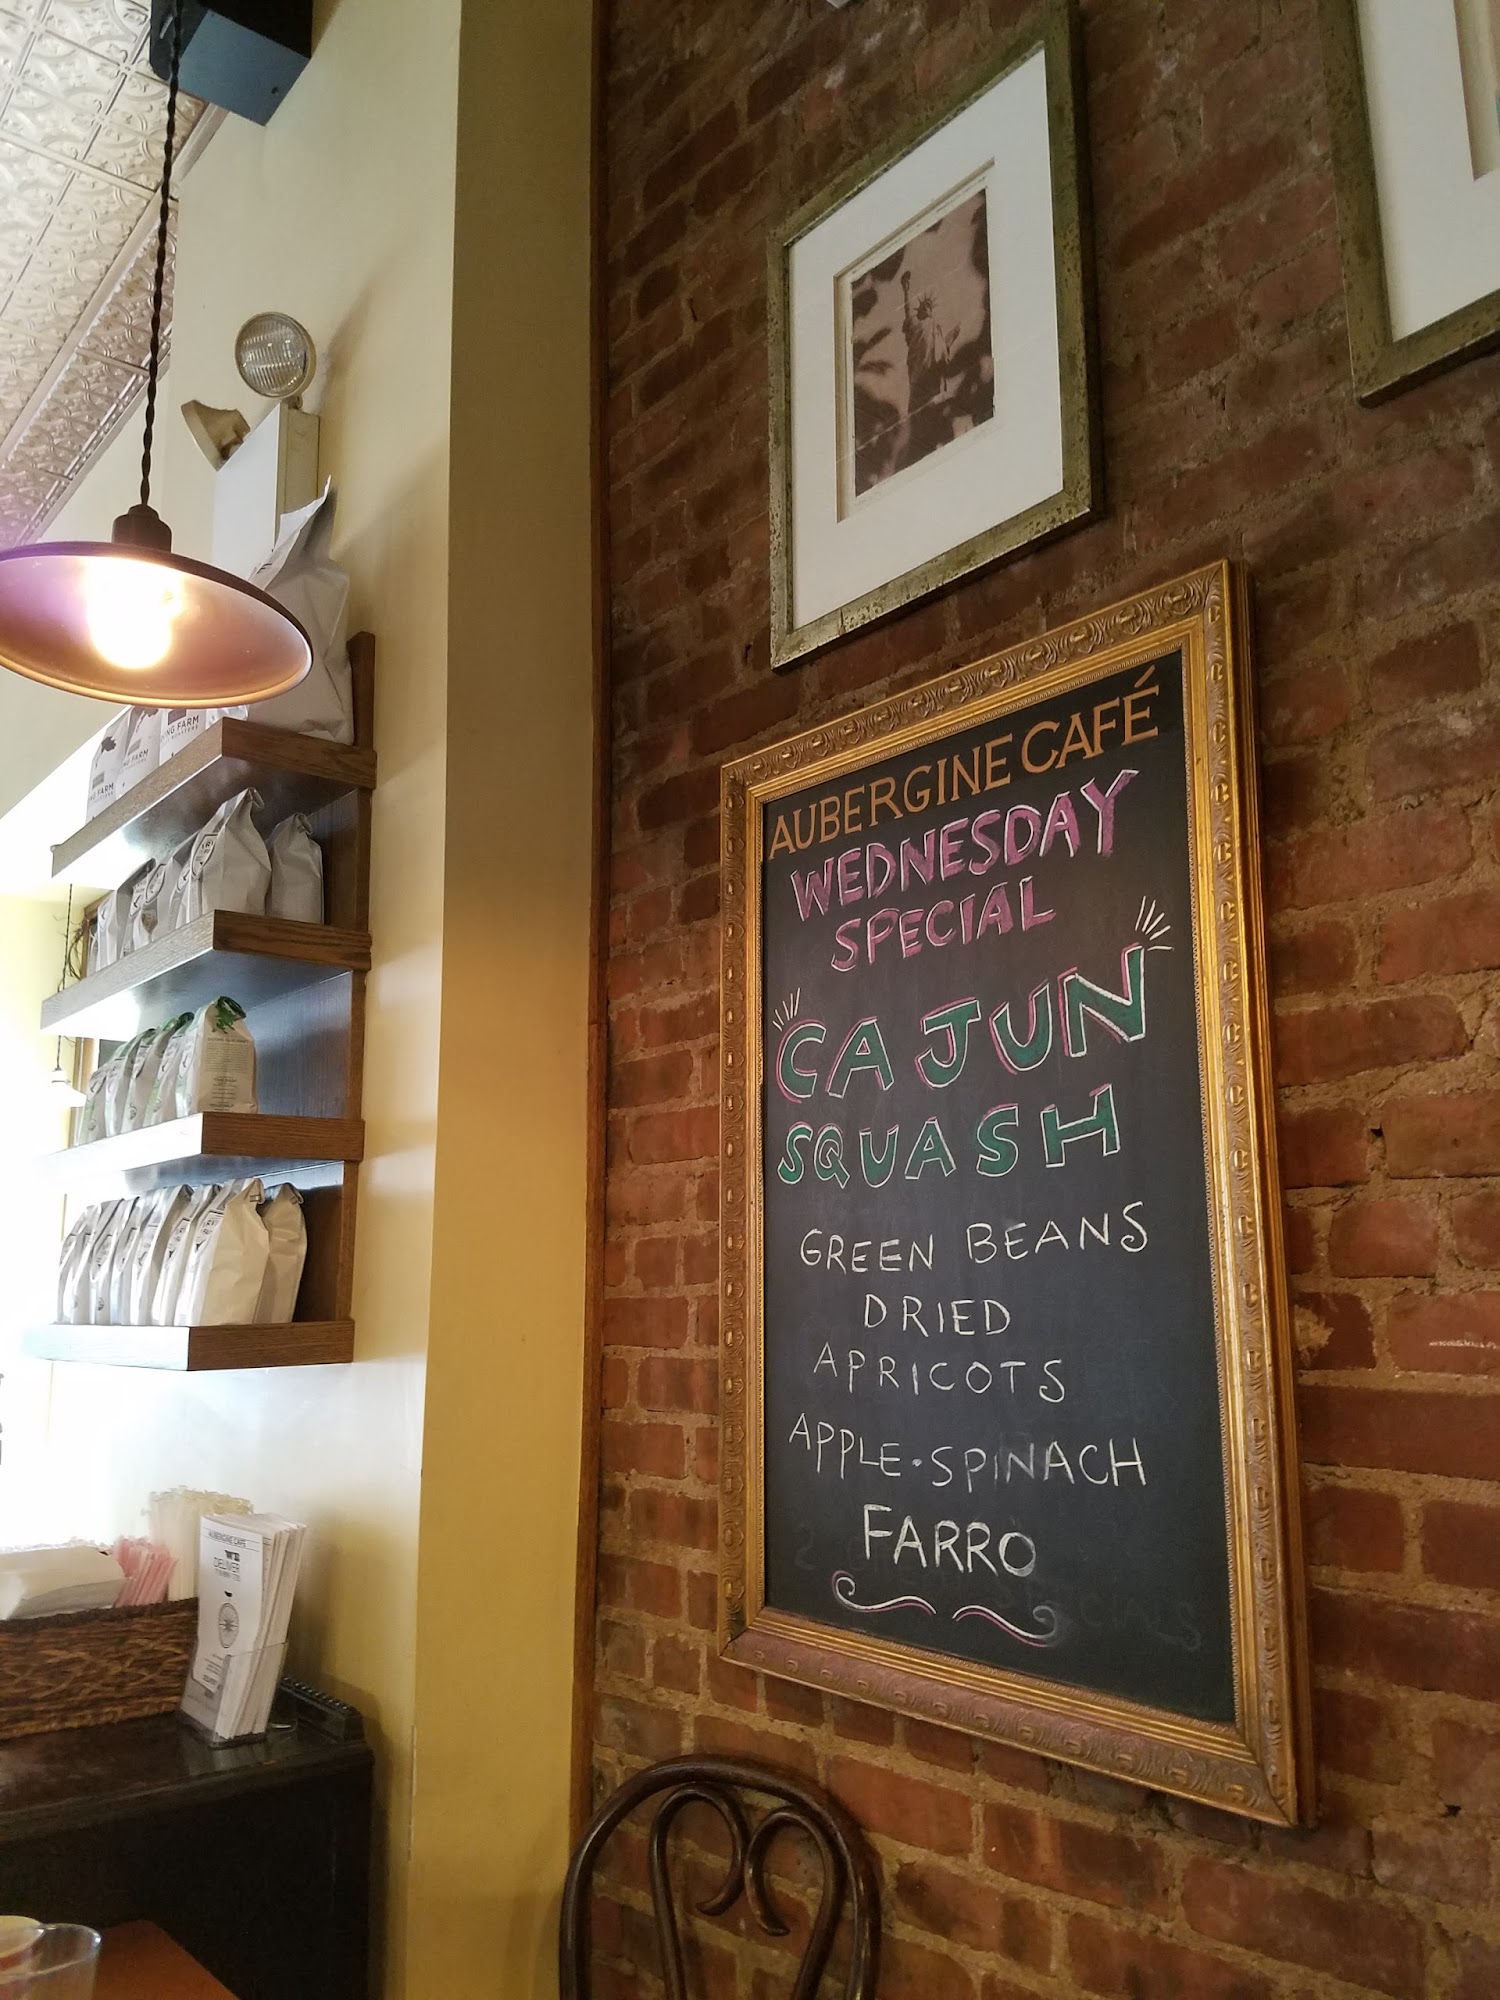 AUBERGINE CAFÉ
WEDNESDAY
SPECIAL
CAJUN
SQUASH
GREEN BEANS
DRIED
APRICOTS
APPLE·SPINACH
FARRO
SPECIALS
FARM
FARM
FARM
AUBERGINE CAFE
WE
DELIVER